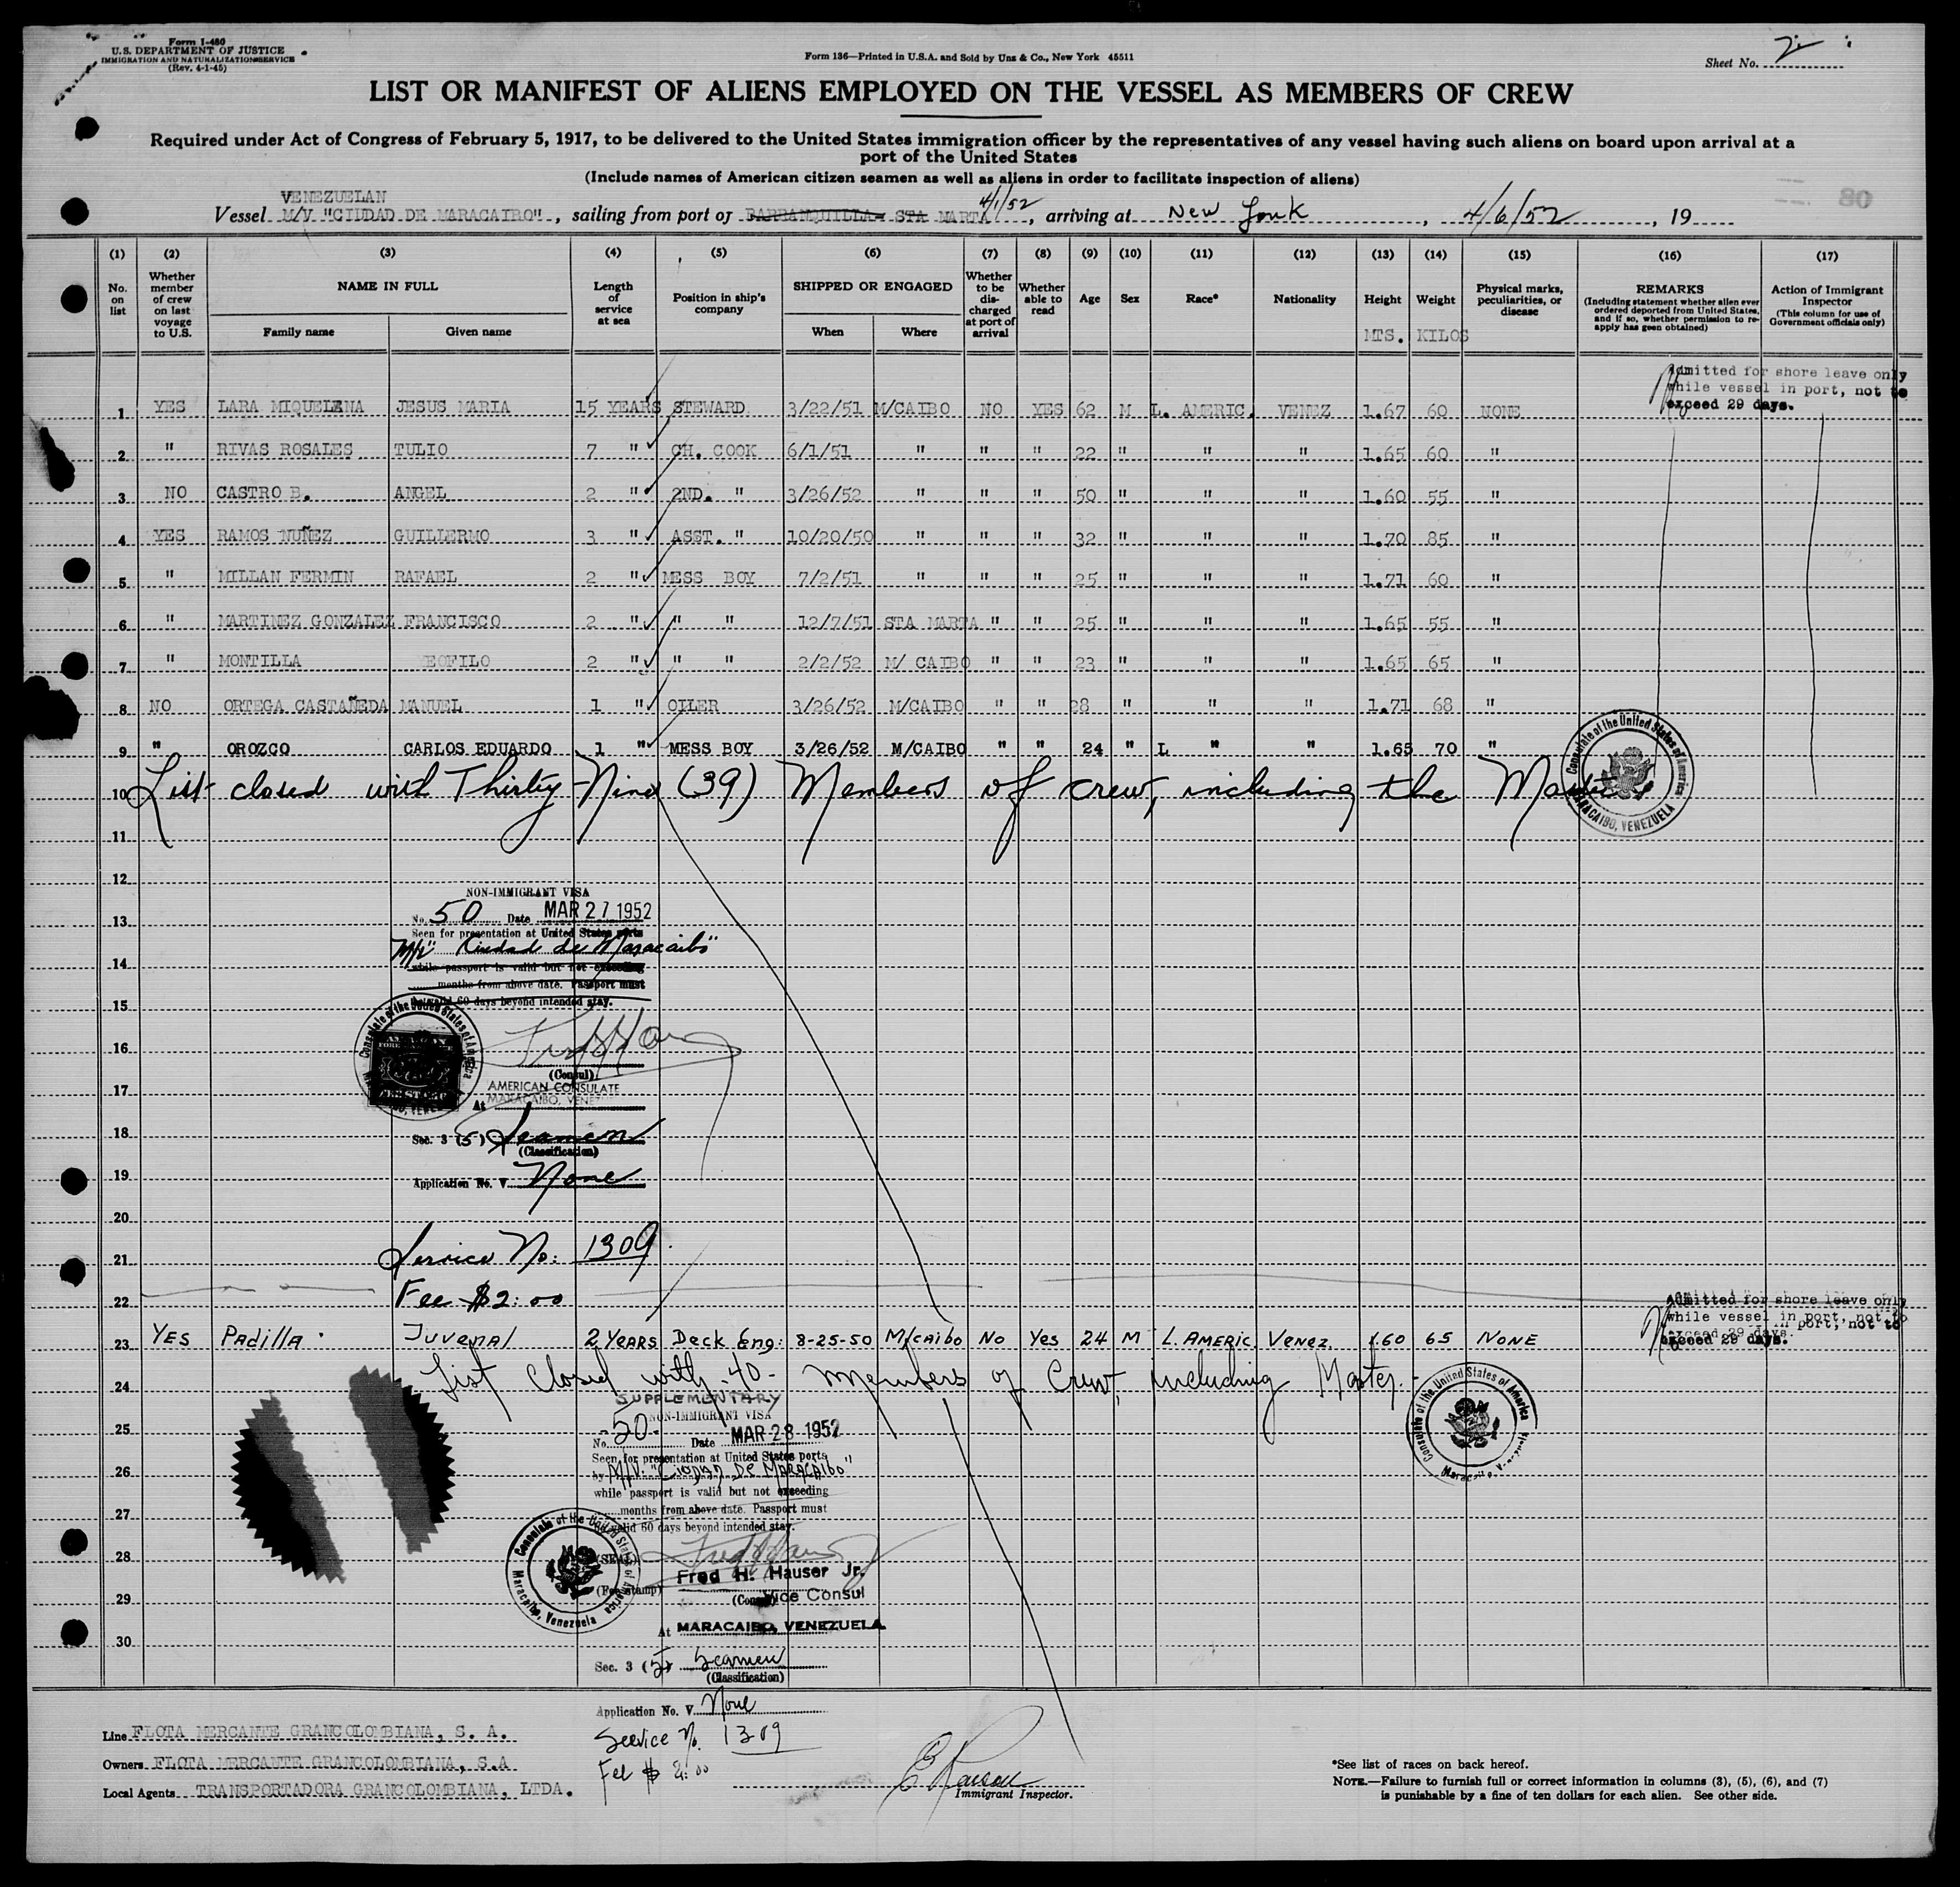 Form I-480
U.S. DEPARTMENT OF JUSTICE
IMMIGRATION AND NATURALIZATION SERVICE
(Rev. 4-1-45)
Form 136—Printed in U.S.A. and Sold by Unz & Co., New York 45511
Sheet No. 2
LIST OR MANIFEST OF ALIENS EMPLOYED ON THE VESSEL AS MEMBERS OF CREW
Required under Act of Congress of February 5, 1917, to be delivered to the United States immigration officer by the representatives of any vessel having such aliens on board upon arrival at a
port of the United States
(Include names of American citizen seamen as well as aliens in order to facilitate inspection of aliens)
80
VENEZUELAN
Vessel M/V "CIUDAD DE MARACAIBO", sailing from port of BARRANQUILLA- STA MARTA 4/1/52, arriving at New York, 4/6/52, 19
(1) (2) (3) (4) (5) (6) (7) (8) (9) (10) (11) (12) (13) (14) (15) (16) (17)
No. on list
Whether member of crew on last voyage to U.S.
NAME IN FULL
Family name
Given name
Length of service at sea
Position in ship's company
SHIPPED OR ENGAGED
When
Where
Whether to be discharged at port of arrival
Whether able to read
Age
Sex
Race*
Nationality
Height
MTS.
Weight
KILOS
Physical marks, peculiarities, or disease
REMARKS
(Including statement whether alien ever ordered deported from United States, and if so, whether permission to re-apply has been obtained)
Action of Immigrant Inspector
(This column for use of Government officials only)
Admitted for shore leave only
while vessel in port, not to
exceed 29 days.
1 YES LARA MIQUELENA JESUS MARIA 15 YEARS STEWARD 3/22/51 M/CAIBO NO YES 62 M L. AMERIC. VENEZ 1.67 60 NONE
2 " RIVAS ROSALES TULIO 7 " CH. COOK 6/1/51 " " " 22 " " " 1.65 60 "
3 NO CASTRO B. ANGEL 2 " 2ND. " 3/26/52 " " " 50 " " " 1.60 55 "
4 YES RAMOS NUÑEZ GUILLERMO 3 " ASST. " 10/20/50 " " " 32 " " " 1.70 85 "
5 " MILLAN FERMIN RAFAEL 2 " MESS BOY 7/2/51 " " " 25 " " " 1.71 60 "
6 " MARTINEZ GONZALEZ FRANCISCO 2 " " " 12/7/51 STA MARTA " " 25 " " " 1.65 55 "
7 " MONTILLA EOFILO 2 " " " 2/2/52 M/ CAIBO " " 23 " " " 1.65 65 "
8 NO ORTEGA CASTAÑEDA MANUEL 1 " OILER 3/26/52 M/CAIBO " " 28 " " " 1.71 68 "
9 " OROZCO CARLOS EDUARDO 1 " MESS BOY 3/26/52 M/CAIBO " " 24 " L " " 1.65 70 "
10 List closed with Thirty-Nine (39) Members of crew, including the Master
Consulate of the United States of America
MARACAIBO, VENEZUELA
11
12
NON-IMMIGRANT VISA
13 No. 50 Date MAR 27 1952
Seen for presentation at United States ports
M/V "Ciudad de Maracaibo"
14 while passport is valid but not exceeding
months from above date. Passport must
15 be valid 60 days beyond intended stay.
Consulate of the United States of America
16
(Consul)
17 AMERICAN CONSULATE
At MARACAIBO, VENEZ
18 Sec. 3 (5) Seamen
(Classification)
19 Application No. V None
20
21 Service No: 1309
22 Fee $2:00
Admitted for shore leave only
while vessel in port, not to
exceed 29 days.
23 YES Padilla Juvenal 2 YEARS Deck Eng: 8-25-50 M/caibo No Yes 24 M L. AMERIC. Venez. 1.60 65 NONE
24 List Closed with -40- Members of Crew, including Master.
Consulate of the United States of America
Maracaibo, Venezuela
SUPPLEMENTARY
NON-IMMIGRANT VISA
25 No. -50- Date MAR 28 1952
Seen for presentation at United States ports
26 by M/V. "CIUDAD De MARACAIBO"
while passport is valid but not exceeding
27 months from above date. Passport must
be valid 60 days beyond intended stay.
Consulate of the United States of America
Maracaibo, Venezuela
28 (SEAL)
Fred H. Hauser Jr.
(Fee stamp)
29 (Consul) Vice Consul
At MARACAIBO, VENEZUELA
30
Sec. 3 (5) Seamen
(Classification)
Application No. V None
Service No. 1309
Fee $ 2.00
Line FLOTA MERCANTE GRANCOLOMBIANA, S. A.
Owners FLOTA MERCANTE GRANCOLOMBIANA, S.A
Local Agents TRANSPORTADORA GRANCOLOMBIANA, LTDA.
Immigrant Inspector.
*See list of races on back hereof.
NOTE.—Failure to furnish full or correct information in columns (3), (5), (6), and (7)
is punishable by a fine of ten dollars for each alien. See other side.